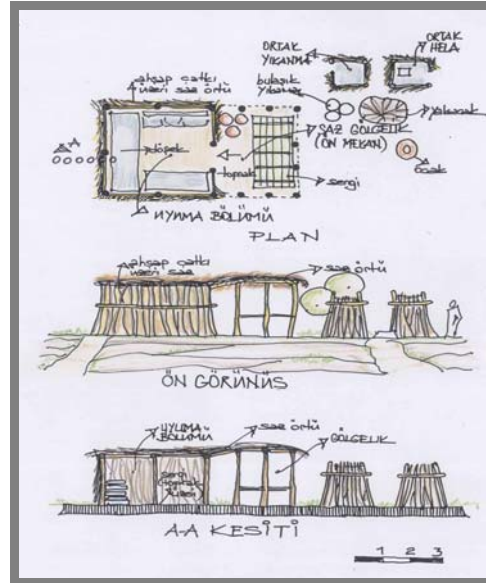 ORTAK
YIKANMA
ORTAK
HELA
ahşap çatkı
üzeri saz örtü
bulaşık
yıkama
yakacak
SAZ GÖLGELİK
(ÖN MEKAN)
A
döşek
toprak
ocak
sergi
UYUMA BÖLÜMÜ
PLAN
ahşap çatkı
üzeri saz
saz örtü
ÖN GÖRÜNÜŞ
UYUMA
BÖLÜMÜ
saz örtü
GÖLGELİK
sergi
A-A KESİTİ
1 2 3